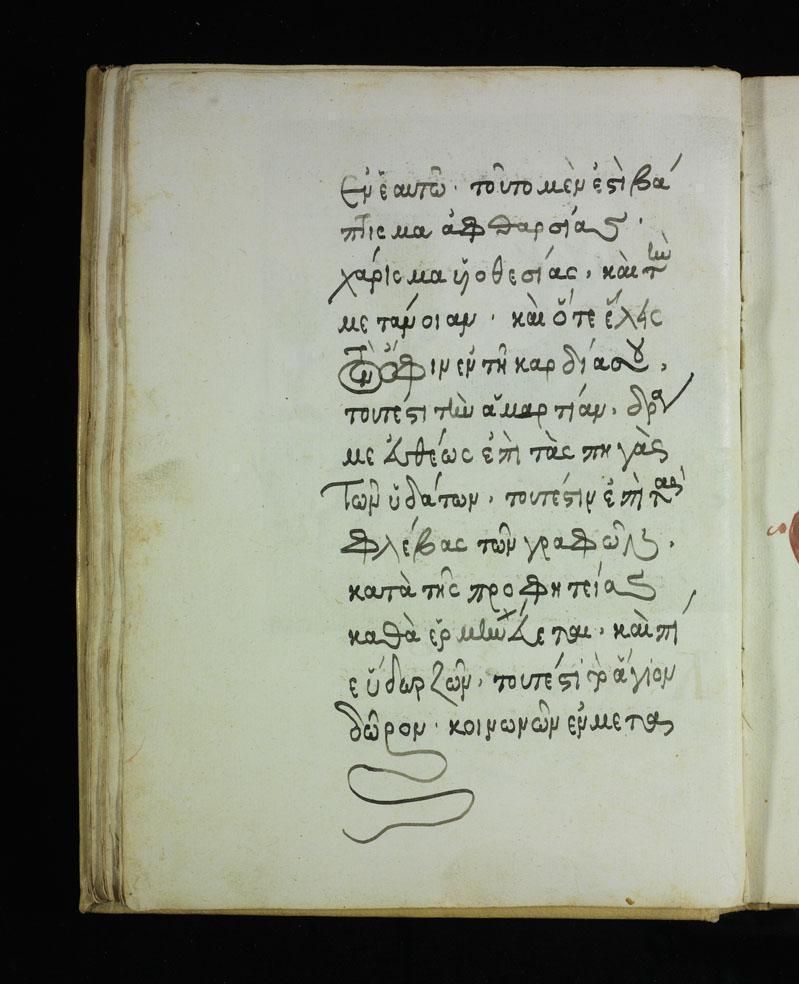 Ἐν ἑαυτῶ· τοῦτο μὲν ἐστὶ βά
πτισμα ἀφθαρσίας·
χάρισμα ὑοθεσίας, καὶ τὴν
μετάνοιαν· καὶ ὅτε
ὄφιν ἐν τῆ καρδία σου,
τουτέστι τὴν ἁμαρτίαν, δρά
με εὐθέως ἐπὶ τὰς πηγὰς
τῶν ὑδάτων, τουτέστιν ἐπὶ τὰς
φλέβας τῶν γραφῶν,
κατὰ τῆς προφητείας
καθὰ ἑρμηνεύεται, καὶ πί
ε ὕδωρ ζῶν, τουτέστι τὸ ἅγιον
δῶρον· κοινωνῶν ἐν μετα